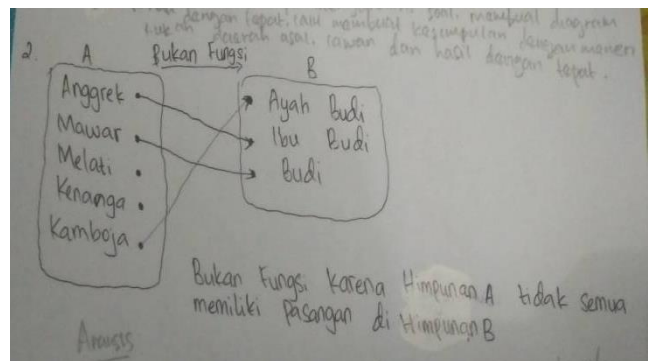 dengan tepat, lalu membuat soal, membuat diagram
membuat kesimpulan dengan menen
tukan daerah asal, lawan dan hasil dengan tepat.
2. A Bukan Fungsi B
Anggrek
Mawar
Melati
Kenanga
Kamboja
Ayah Budi
Ibu Budi
Budi
Bukan Fungsi Karena Himpunan A tidak semua
memiliki Pasangan di Himpunan B
Analisis